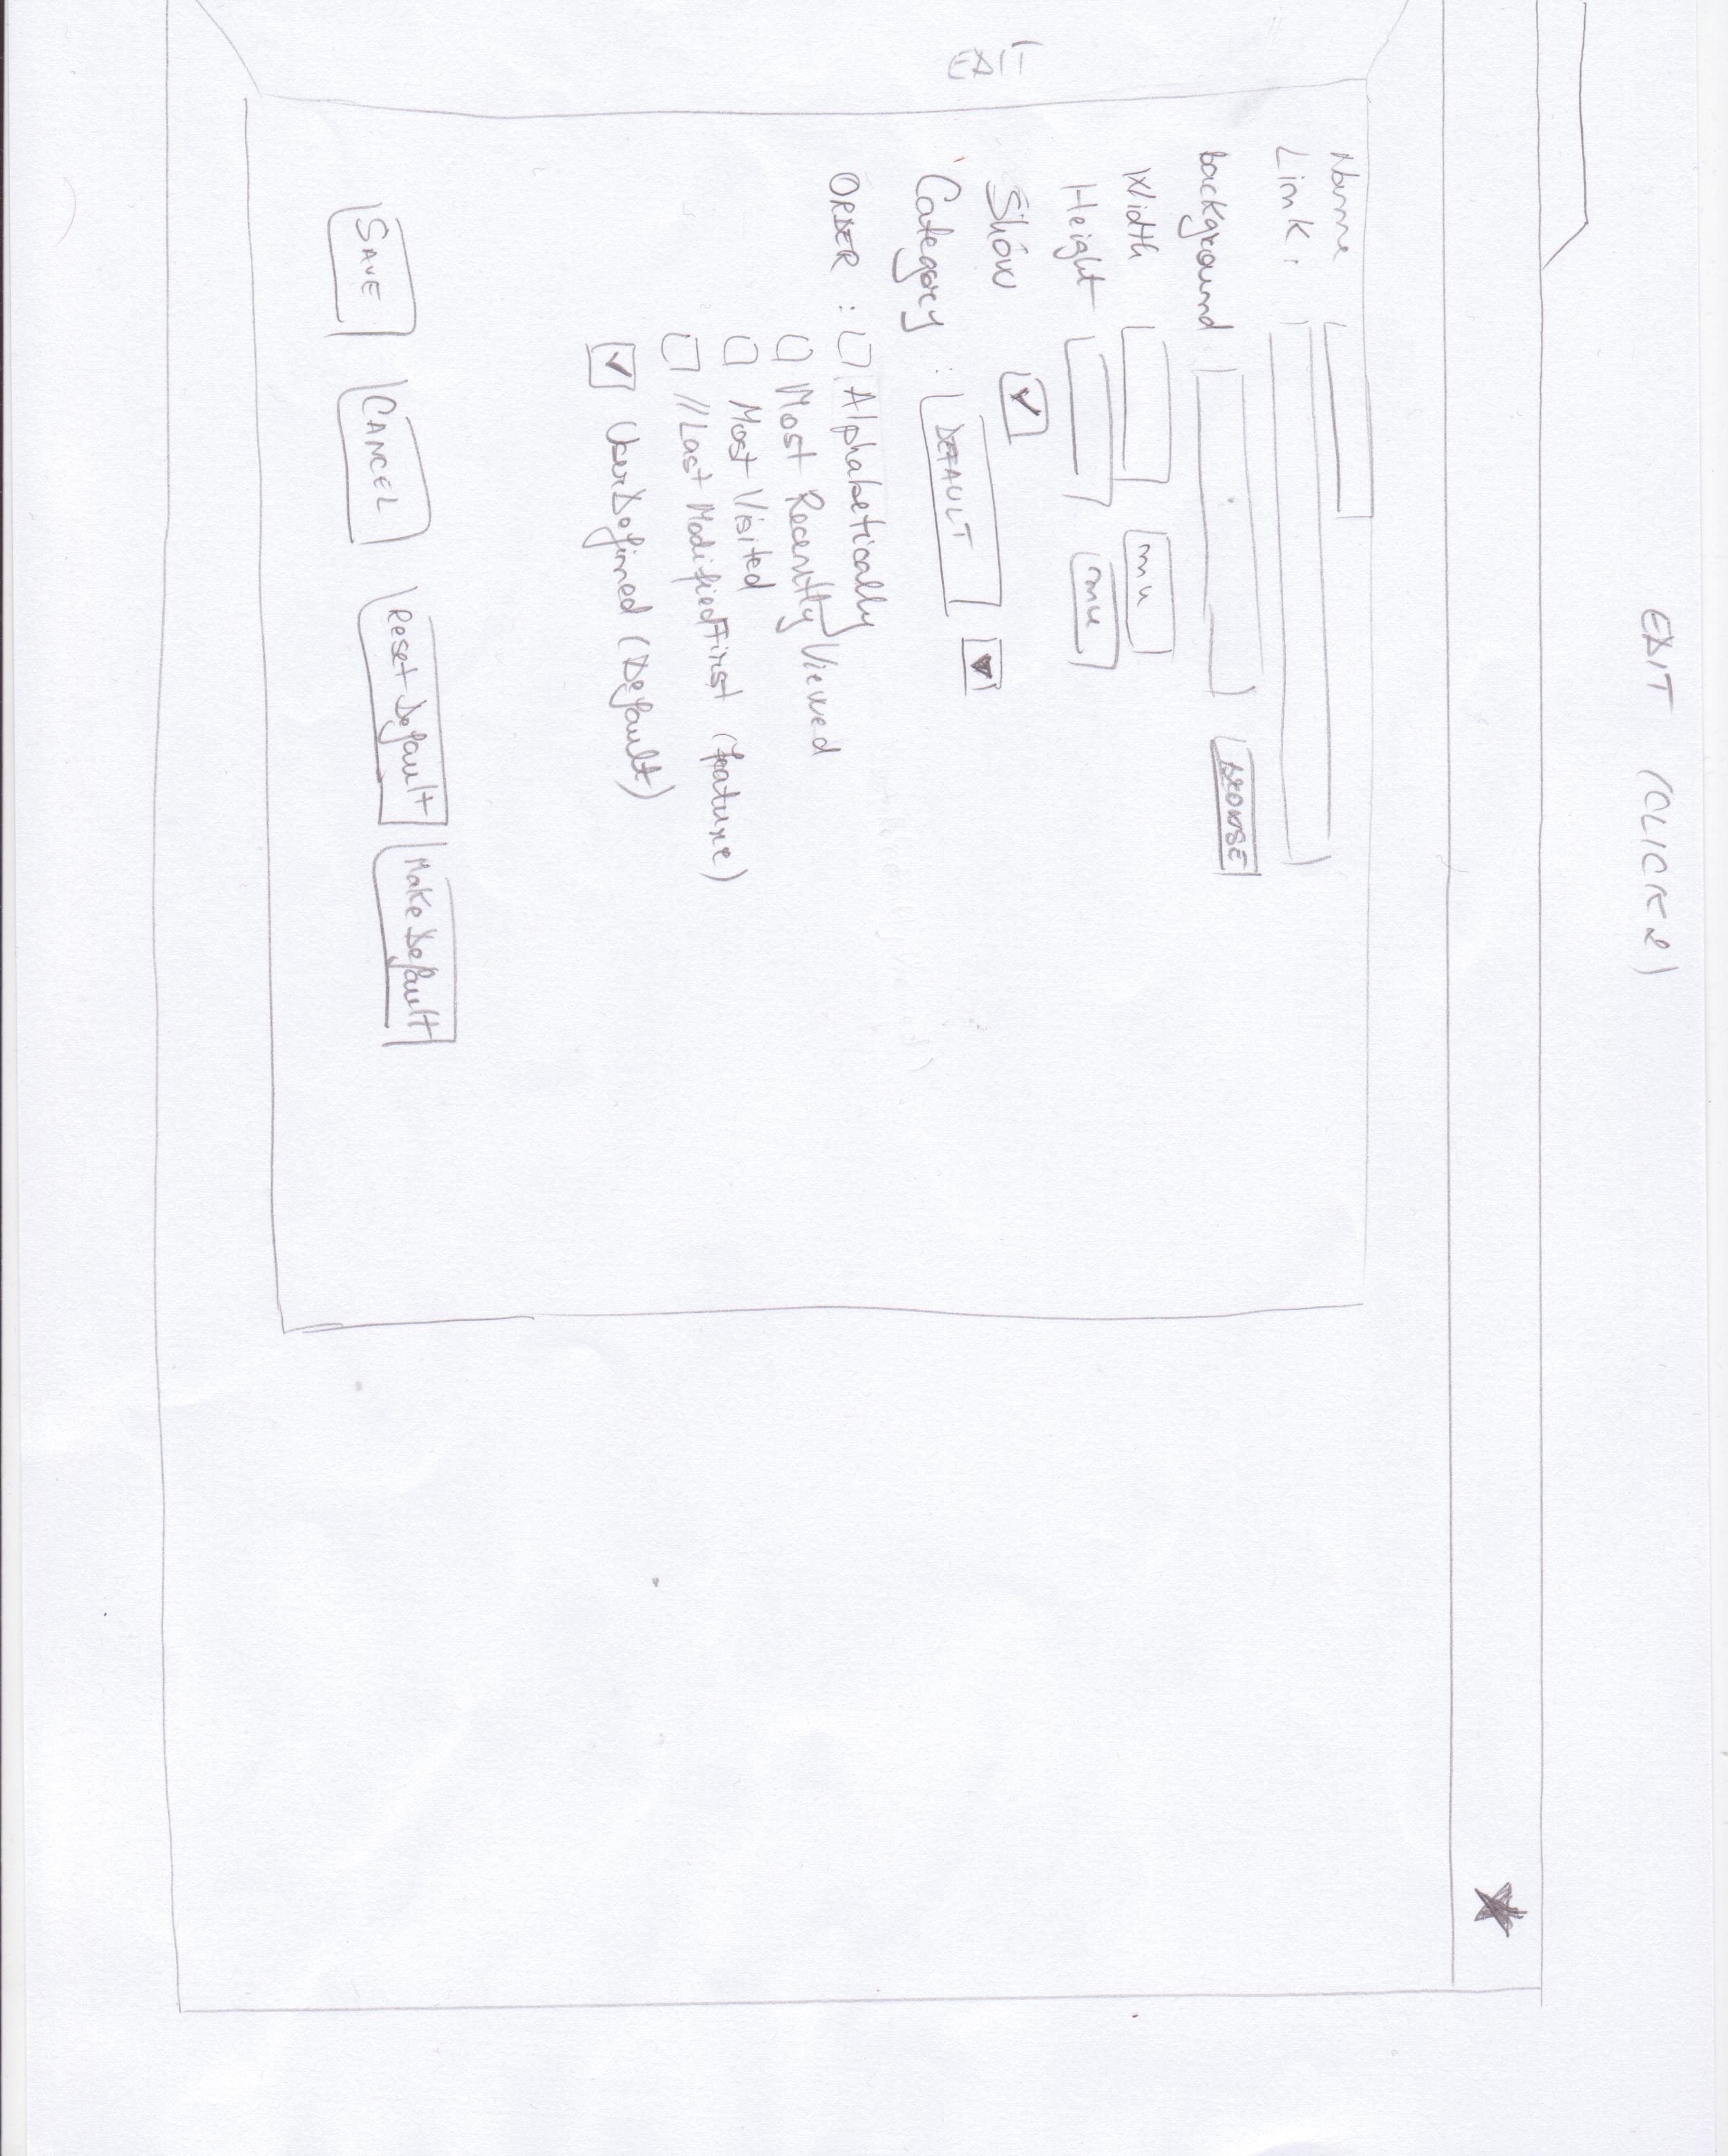 EDIT (CLICK 2)
EDIT
Name
Link:
background BROWSE
Width mu
Height mu
Show
Category : DEFAULT
ORDER : Alphabetically
Most Recently Viewed
Most Visited
//Last ModifiedFirst (feature)
UserDefined (Default)
SAVE CANCEL Reset Default Make Default